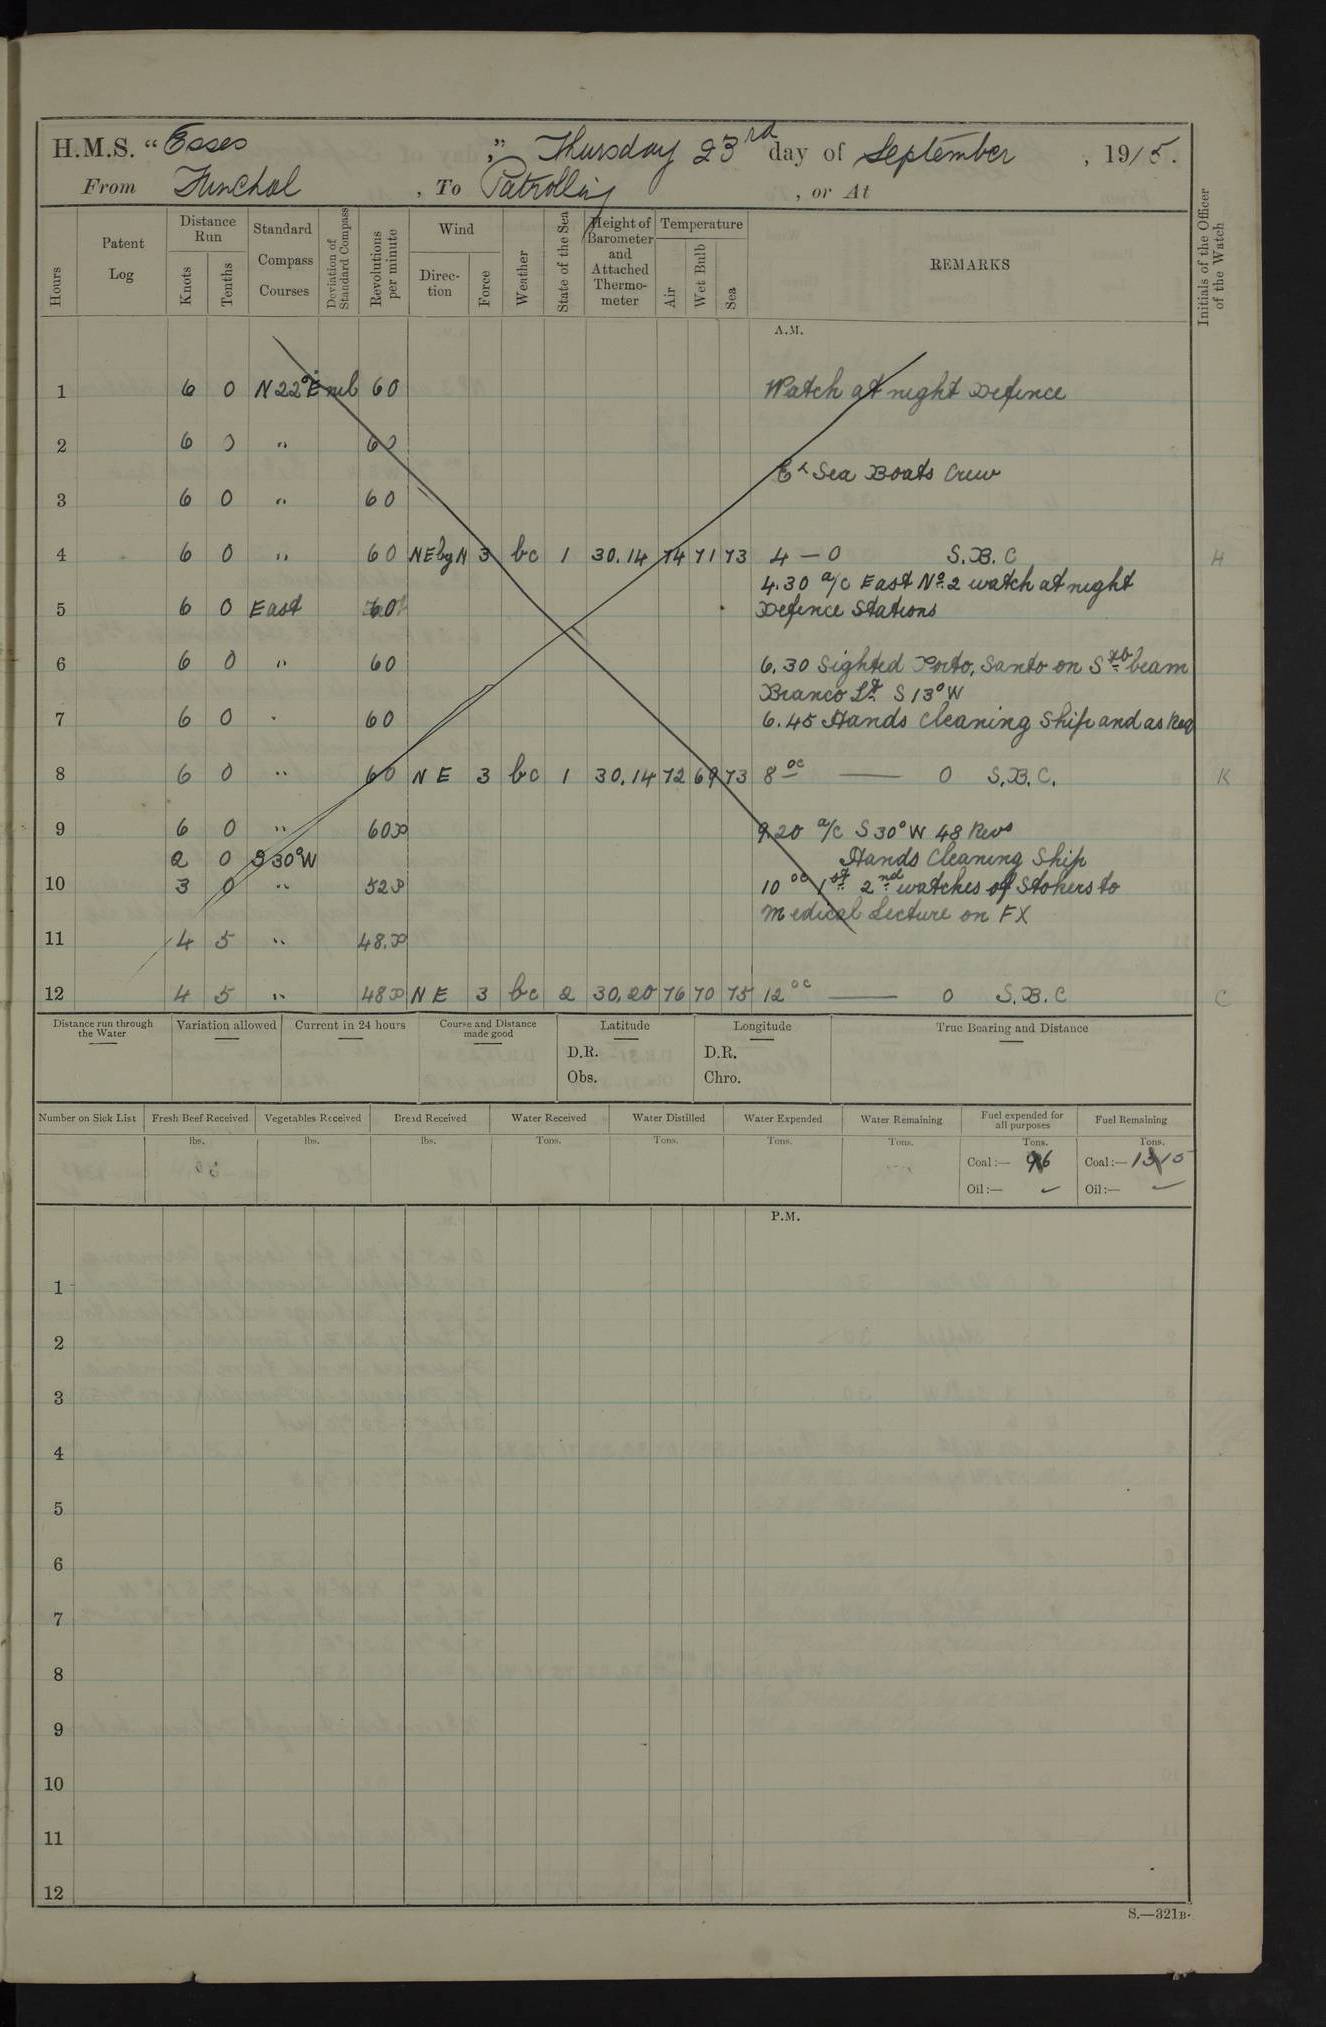 H.M.S. "Essex," Thursday 23rd day of September, 1915.
From Funchal, To Patrolling, or At
Hours
Patent Log
Distance Run
Knots
Tenths
Standard Compass Courses
Deviation of Standard Compass
Revolutions per minute
Wind
Direction
Force
Weather
State of the Sea
Height of Barometer and Attached Thermometer
Temperature
Air
Wet Bulb
Sea
REMARKS
Initials of the Officer of the Watch
A.M.
1 6 0 N 22° E 60 Watch at night Defence
2 6 0 " 60
& Sea Boats Crew
3 6 0 " 60
4 6 0 " 60 NE by N 3 bc 1 30.14 74 71 73 4 — 0 S.B.C H
4.30 a/c East No. 2 watch at night
5 6 0 East 60 Defence Stations
6 6 0 " 60 6.30 Sighted Porto, Santo on Stb beam
Branco Lt S 13° W
7 6 0 " 60 6.45 Hands Cleaning Ship and as Req
8 6 0 " 60 NE 3 bc 1 30.14 72 69 73 8oc — 0 S.B.C. K
9 6 0 " 60 9.20 a/c S 30° W 48 Revs
2 0 S 30° W Hands Cleaning Ship
10 3 0 " 52 10 oc 1st 2nd watches of Stokers to
Medical Lecture on FX
11 4 5 " 48
12 4 5 " 48 NE 3 bc 2 30.20 76 70 75 12 oc — 0 S.B.C C
Distance run through the Water
Variation allowed
Current in 24 hours
Course and Distance made good
Latitude
D.R.
Obs.
Longitude
D.R.
Chro.
True Bearing and Distance
Number on Sick List
Fresh Beef Received
lbs.
Vegetables Received
lbs.
Bread Received
lbs.
Water Received
Tons.
Water Distilled
Tons.
Water Expended
Tons.
Water Remaining
Tons.
Fuel expended for all purposes
Tons.
Coal:— 96
Oil:— ✓
Fuel Remaining
Tons.
Coal:— 1315
Oil:— ✓
P.M.
1
2
3
4
5
6
7
8
9
10
11
12
S.—321B.